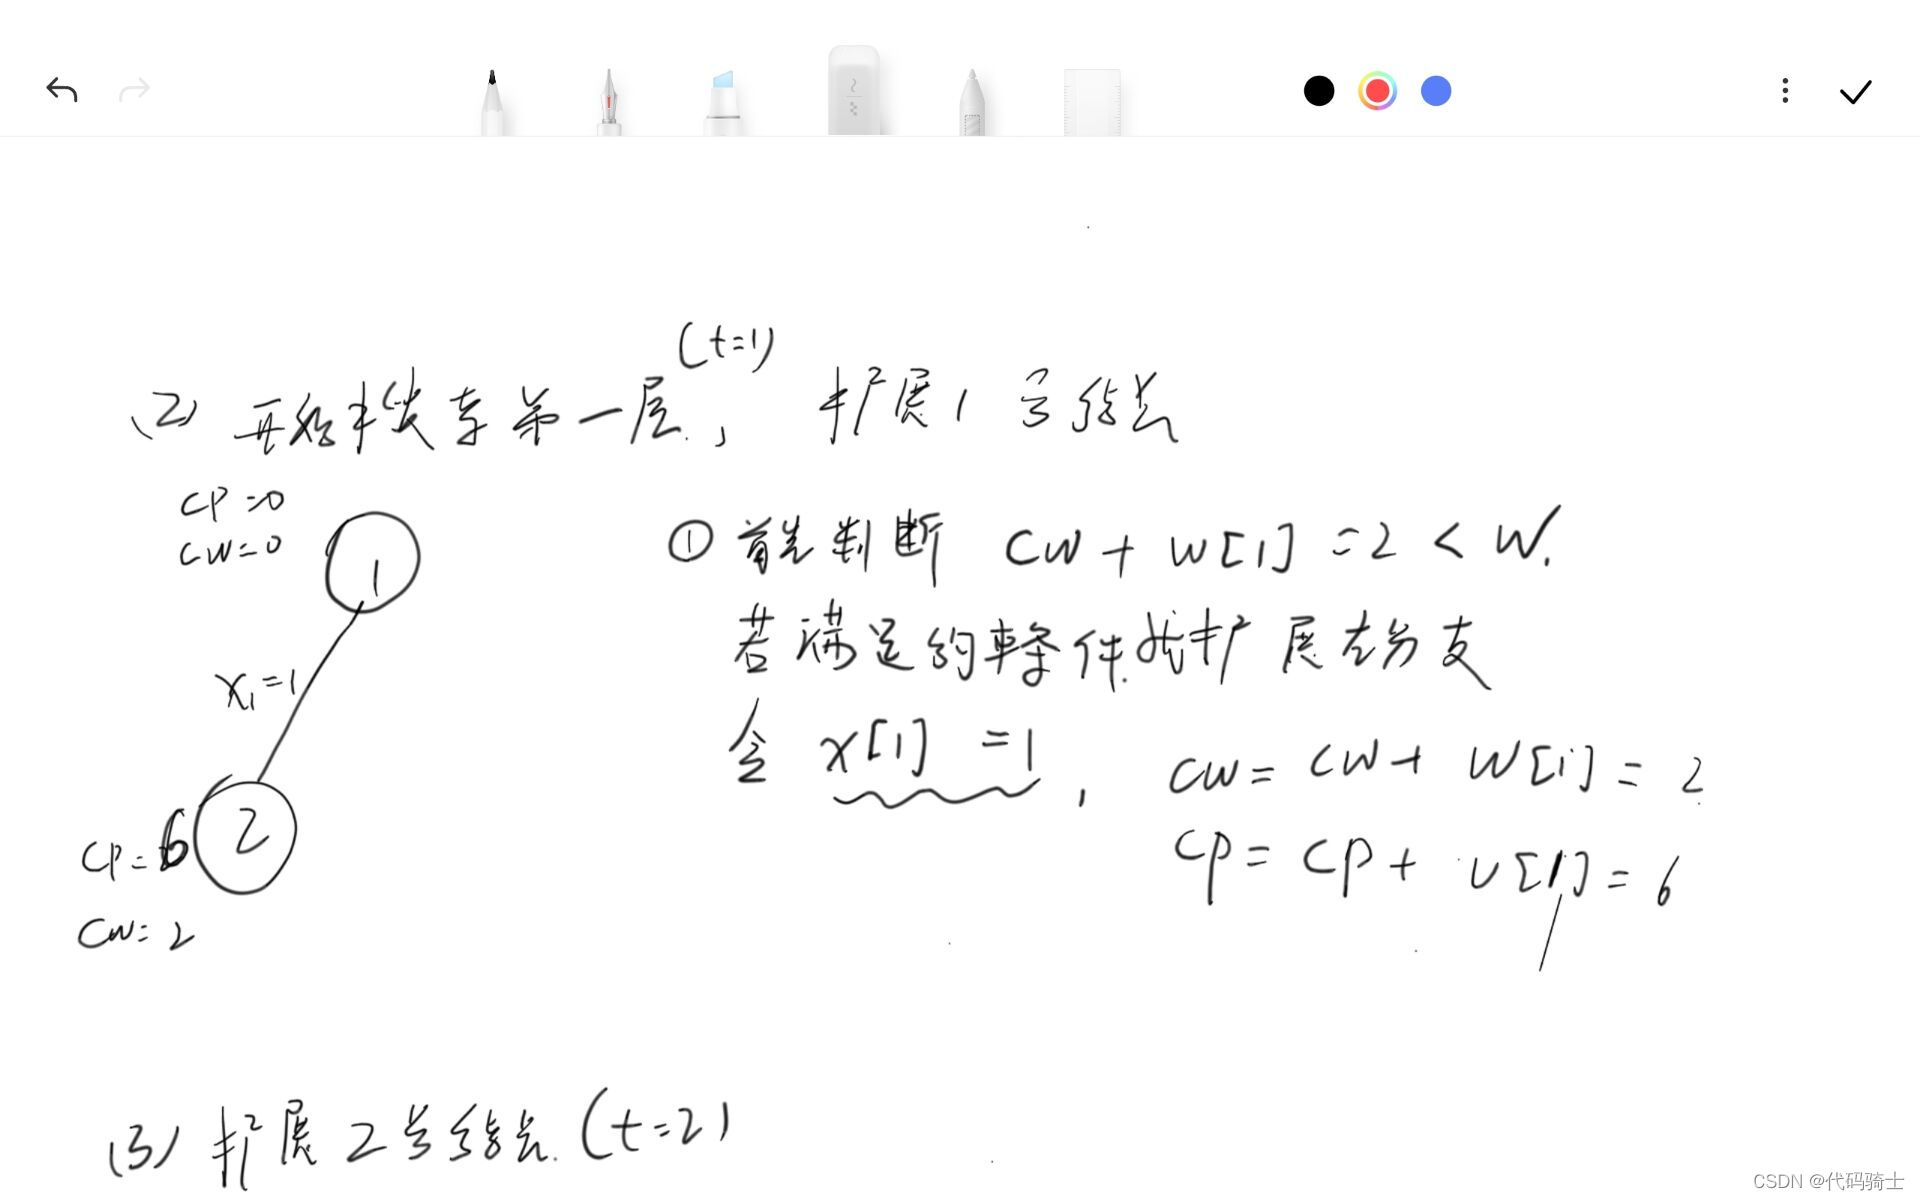 (t=1)
(2) 开始搜索第一层, 扩展1号结点
cp=0
cw=0
1
① 首先判断 cw + w[1] = 2 < W.
若满足约束条件就扩展左分支
x₁=1
令 x[1] =1, cw= cw+ w[1] = 2
cp= cp+ v[1] = 6
2
cp=6
cw=2
(3) 扩展2号结点. (t=2)
CSDN @代码骑士